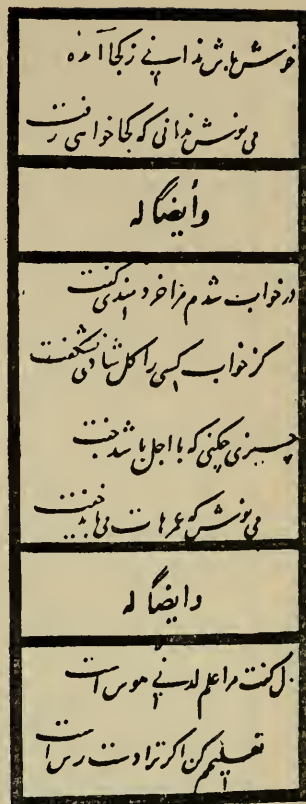 خوش باش ندانی ز کجا آمدهٔ
می نوش ندانی که کجا خواهی رفت
وأیضاً له
در خواب شدم مرا خردمندی گفت
کز خواب کسی را گل شادی نشکفت
چیزی چکنی که با اجل باشد جفت
می نوش که عمرهات می باید خفت
وایضاً له
دل گفت مرا علم لدنی هوس است
تعلیمم کن اگر ترا دست رس است